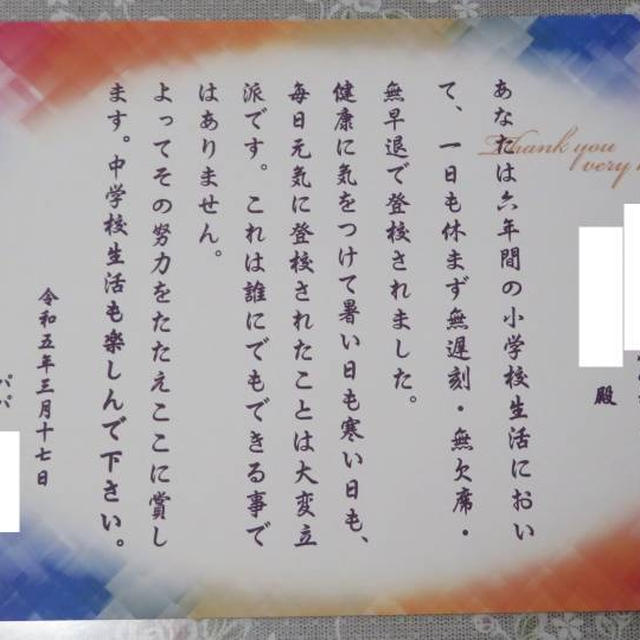 Thank you
very
殿
あなたは六年間の小学校生活におい
て、一日も休まず無遅刻・無欠席・
無早退で登校されました。
健康に気をつけて暑い日も寒い日も、
毎日元気に登校されたことは大変立
派です。これは誰にでもできる事で
はありません。
よってその努力をたたえここに賞し
ます。中学校生活も楽しんで下さい。
令和五年三月十七日
パパ